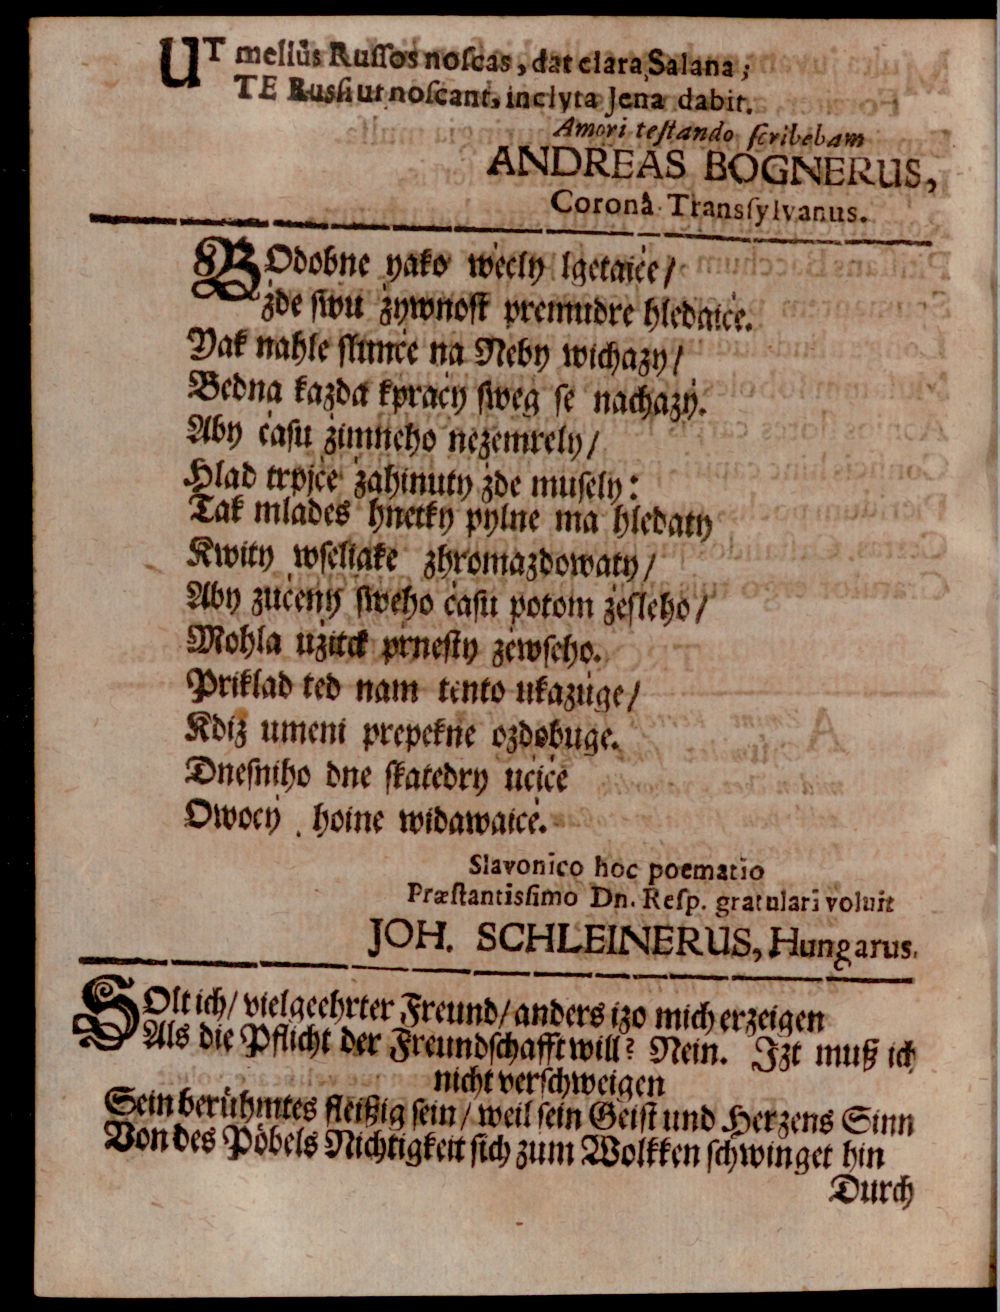 UT meliùs Russos noscas, dat clara Salana;
TE Russi ut noscant, inclyta Jena dabit.
Amori testando scribebam
ANDREAS BOGNERUS,
Coronâ-Transsylvanus.
POdobne yako wećely lgetaiće/
żde swu żywnost premudre hledaiće.
Yak nahle slunće na Neby wichazy/
Bedna kazda kpraćy sweg se nachazý.
Aby ćasu żimneho nezemrely/
Hlad trpjće żahinuty żde musely:
Tak mlades hnetky pylne ma hledaty
Kwity wseliake zhromazdowaty/
Aby zućený sweho ćasu potom żesleho/
Mohla użitck prnesty żewseho.
Priklad ted nam tento ukazúge/
Kdiz umeni prepekne ozdobuge.
Dnesniho dne skatedry ućiće
Owocý hoine widawaiće.
Slavonico hoc poematio
Præstantissimo Dn. Resp. gratulari voluit
JOH. SCHLEINERUS, Hungarus.
SOlt ich/ vielgeehrter Freund/ anders izo mich erzeigen
Als die Pflicht der Freundschafft will? Nein. Izt muß ich
nicht verschweigen
Sein berühmtes fleißig sein/ weil sein Geist und Herzens Sinn
Von des Pöbels Nichtigkeit sich zum Wolkken schwinget hin
Durch